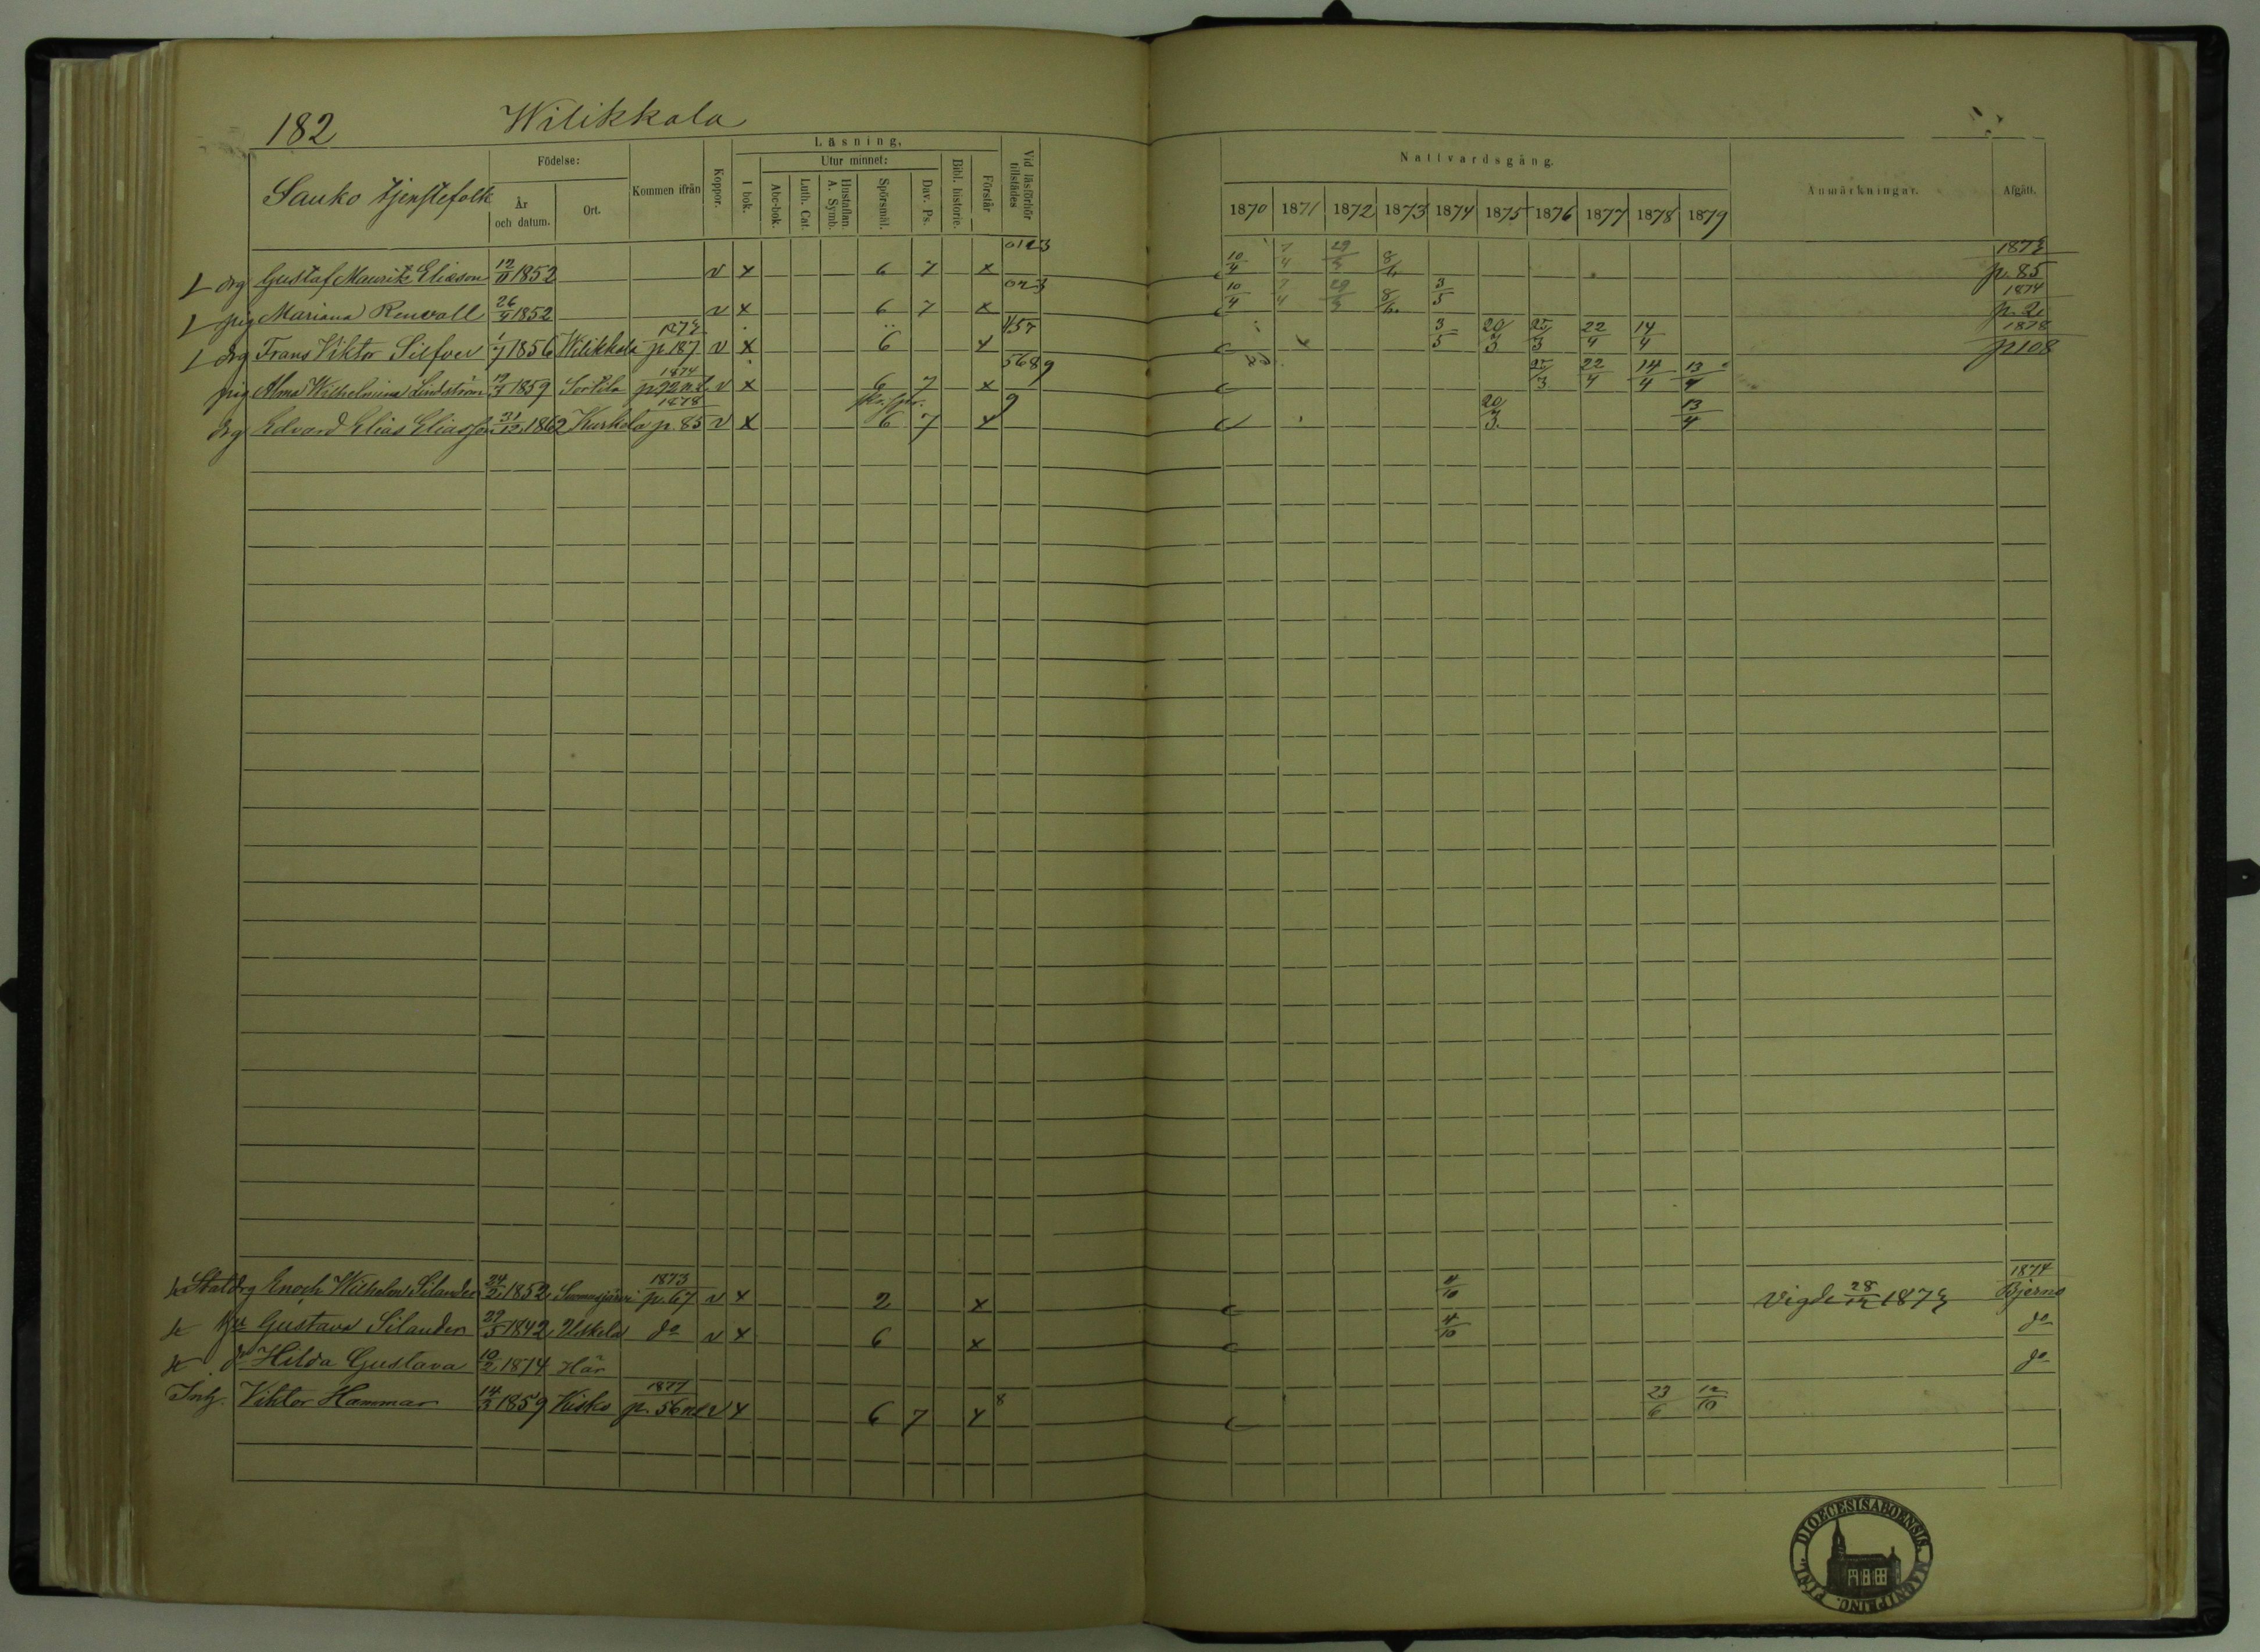 182 Wilikkala
Sauko tjenstefolk
Födelse: År och datum. Ort. Kommen ifrån Koppor. Läsning, I bok. Utur minnet: Abc-bok. Luth. Cat. Hustaflan. A. Symb. Spörsmål. Dav. Ps. Bibl. historie. Förstår Vid läsförhör tillstädes Nattvardsgång. Anmärkningar. Afgått.
1870 1871 1872 1873 1874 1875 1876 1877 1878 1879
drg Gustaf Maurits Eliason 12/11 1852 v x 6 7 x 0123 10/4 7/4 8/6 1873 p. 85
pig Mariana Renvall 26/4 1852 v x 6 7 x 10/4 7/4 8/6 3/5 1874 p. 2
drg Frans Viktor Silfver 1/7 1856 Wilikkala p. 187 v x 6 x 457 3/5 20/3 25/3 22/4 14/4 1878 p 108
pig Alma Wilhelmina Lindström 19/3 1859 Sortila 1874 v x 6 7 x 5689 25/3 22/4 14/4 13/4
drg Edvard Elias Eliasson 21/12 1862 Kurkela 1878 p. 85 v x 6 7 x 9 20/3 13/4
Statdrg Enoch Wilhelm Silander 24/2 1852 Suomusjärvi 1873 p. 67 v x 2 x 4/10 Vigde 28/12 1873 1874 Bjerno
hu Gustava Silander 29/5 1842 Uskela do v x 6 x 4/10 do
dr Hilda Gustava 10/2 1874 Här do
Inh. Viktor Hammar 14/3 1859 Kisko 1877 p. 56 v x 6 7 x 8 23/6 12/10
FINL. DIOECESIS ABOENSIS. MAGNI PRINC.